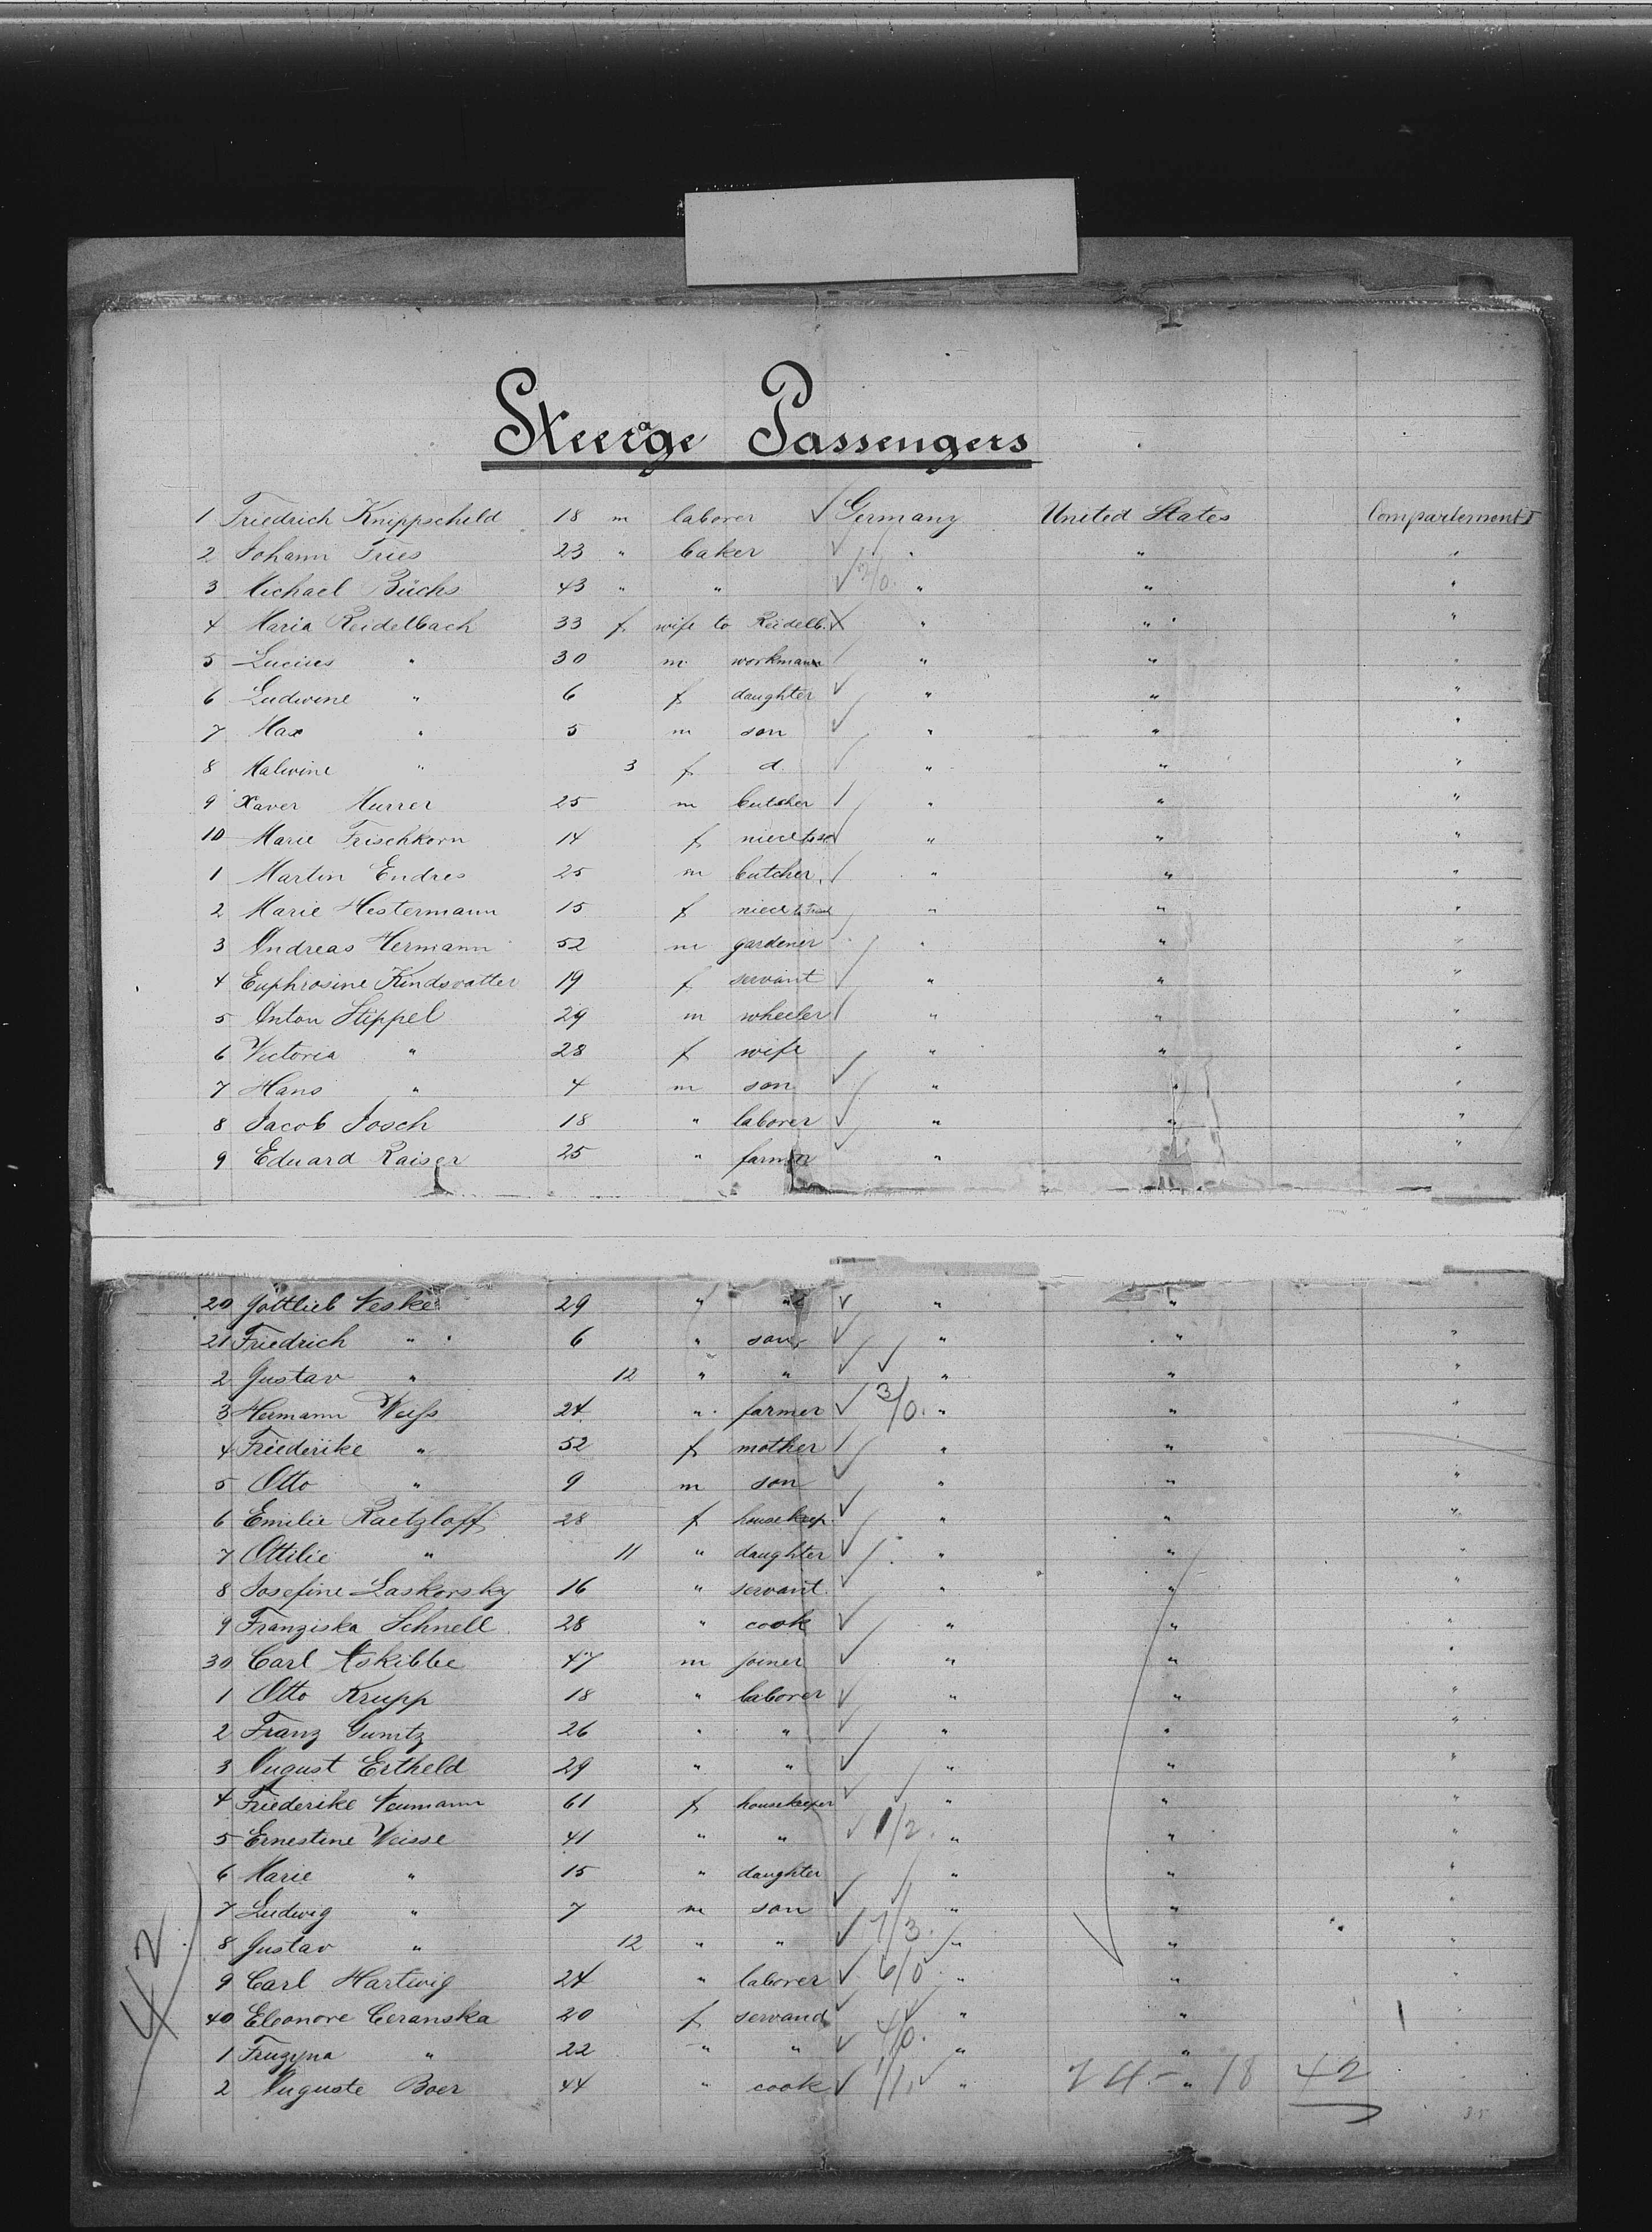 Steerage Passengers
1 Friedrich Knippscheld 18 m laborer ✓ Germany United States Compartement I
2 Johann Fries 23 " baker ✓ " " "
3 Michael Büchs 43 " " ✓ 3/0. " " "
4 Maria Reidelbach 33 f. wife to Reidelb. " " "
5 " 30 m workmann " " "
6 Ludwine " 6 f daughter ✓ " " "
7 Max " 5 m son ✓ " " "
8 Malwine " 3 f d. ✓ " " "
9 Xaver Murrer 25 m butcher ✓ " " "
10 Marie Frischkorn 14 f niece ✓ " " "
1 Martin Endres 25 m butcher. ✓ " " "
2 Marie Hestermann 15 f niece " " "
3 Andreas Hermann 52 m gardener ✓ " " "
4 Euphrosine Kindsvatter 19 f servant ✓ " " "
5 Anton Stippel 29 m wheeler ✓ " " "
6 Victoria " 28 f wife " " "
7 Hans " 4 m son ✓ " " "
8 Jacob Josch 18 " laborer ✓ " " "
9 Eduard Kaiser 25 " farmer ✓ " "
20 Gottlieb Neske 29 " " ✓ " "
21 Friedrich " 6 " son ✓ " " "
2 Gustav " 12 " " ✓ ✓ " " "
3 Hermann Weiss 24 " farmer ✓ 3/0. " " "
4 Friederike " 52 f mother ✓ " " "
5 Otto " 9 m son ✓ " " "
6 Emilie Raetzlaff 28 f housekeep. ✓ " " "
7 Ottilie " 11 " daughter ✓ " " "
8 Josefine Laskorsky 16 " servant. ✓ " " "
9 Franziska Schnell 28 " cook ✓ " " "
30 Carl Askibbe 47 m joiner ✓ " " "
1 Otto Krupp 18 " laborer ✓ " " "
2 Franz Gumtz 26 " " ✓ " " "
3 August Ertheld 29 " " ✓ " " "
4 Friederike Neumann 61 f housekeeper ✓ ✓ " " "
5 Ernestine Weisse 41 " " ✓ 1/2. " " "
6 Marie " 15 " daughter ✓ " " "
7 Ludwig " 7 m son ✓ " " "
8 Gustav " 12 " " ✓ 1/3. " " "
9 Carl Hartwig 24 " laborer ✓ 6/0 " " "
40 Eleonore Ceranska 20 f servand ✓ ✓ " " "
1 Fruzyna " 22 " " ✓ 4/0. " " "
2 Auguste Boer 44 " cook ✓ 1/1. ✓ " 24 - " 18 42
42
35